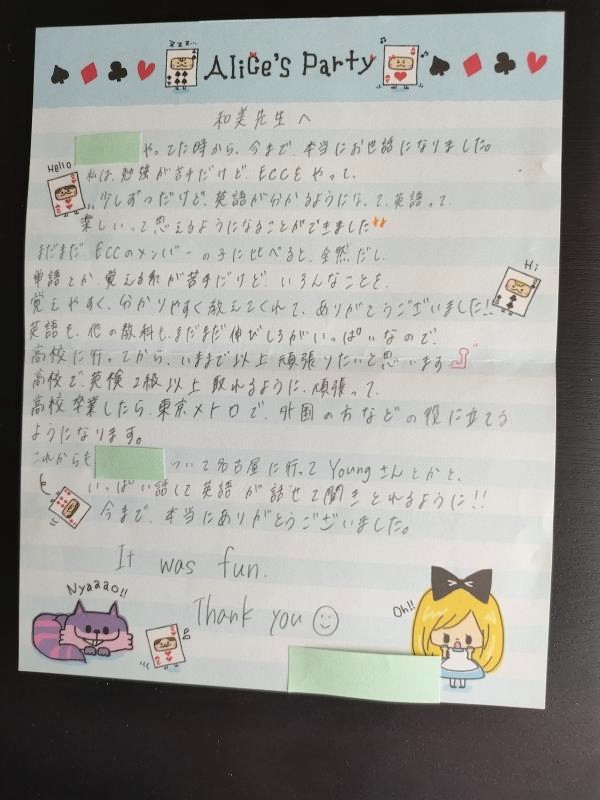 Alice's Party
和美先生へ
やってた時から、今まで、本当にお世話になりました。
Hello
私は、勉強が苦手だけど、ECCをやって、
少しずつだけど、英語が分かるようになって、英語って、
楽しいって思えるようになることができました
まだまだ、ECCのメンバーの子に比べると、全然だし、
Hi
単語とか、覚える系が苦手だけど、いろんなことを、
覚えやすく、分かりやすく教えてくれて、ありがとうございました!!
英語も、他の教科も、まだまだ伸びしろがいっぱいなので、
高校に行ってから、いままで以上頑張りたいと思います
高校で、英検2級以上取れるように、頑張って、
高校卒業したら、東京メトロで、外国の方などの役に立てる
ようになります。
これからも ついて名古屋に行って Youngさんとかと、
いっぱい話して英語が話せて聞きとれるように!!
今まで、本当にありがとうございました。
It was fun.
Nyaaao!!
Thank you
Oh!!